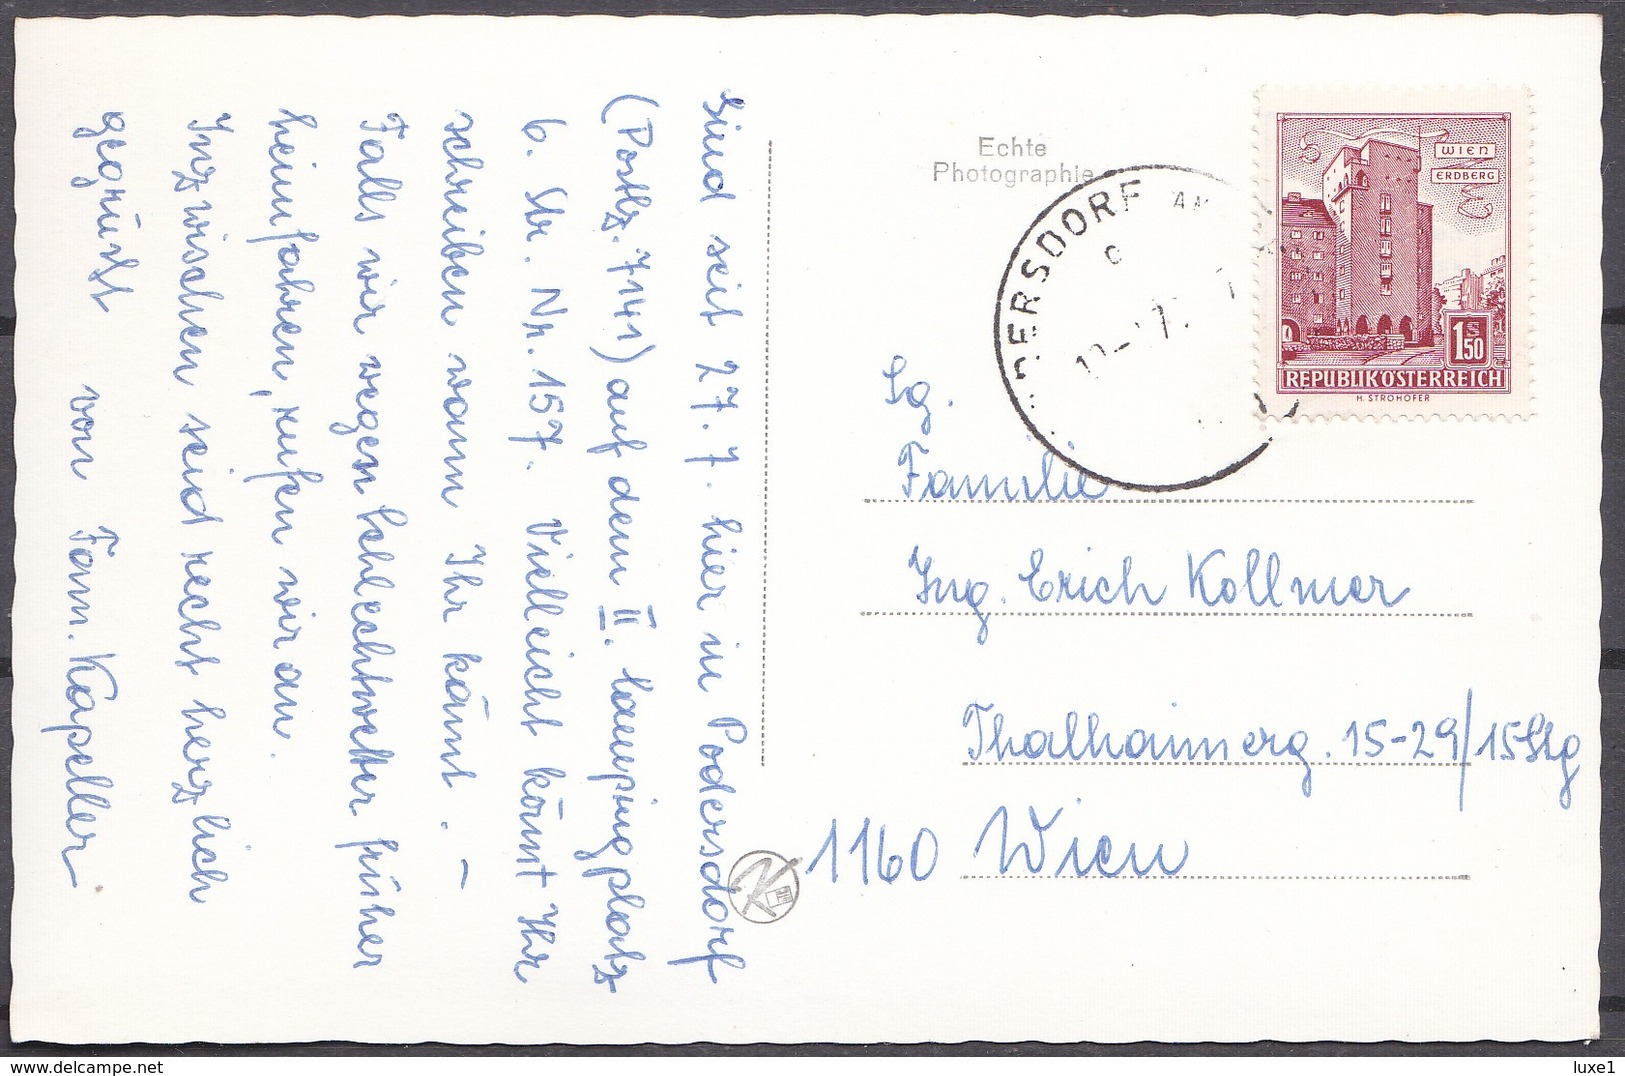 Sind seit 27.7. hier in Podersdorf
(Postlz. 7141) auf dem II. Campingplatz
6. Str. Nr. 157. Vielleicht könnt Ihr
schreiben wann Ihr kämt. –
Falls wir wegen Schlechtwetter früher
heimfahren, rufen wir an.
Inzwischen seid recht herzlich
gegrüsst von Fam. Kapeller
Echte
Photographie
DERSDORF AM
WIEN
ERDBERG
1S50
REPUBLIK ÖSTERREICH
H. STROHOFER
Sg.
Familie
Ing. Erich Kollmer
Thalhaimerg. 15-29/15Stg
1160 Wien
luxe1